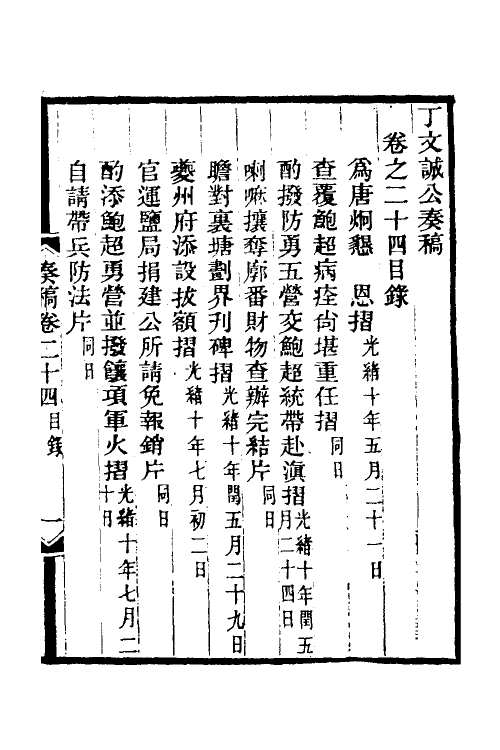 丁文誠公奏稿
卷之二十四目錄
爲唐炯懇　恩摺光緒十年五月二十一日
查覆鮑超病痊尙堪重任摺同日
酌撥防勇五營交鮑超統帶赴滇摺光緒十年閏五月二十四日
喇嗽攘奪廓番財物查辦完結片同日
瞻對裏塘劃界刋碑摺光緒十年閏五月二十九日
夔州府添設拔額摺光緒十年七月初二日
官運鹽局捐建公所請免報銷片同日
酌添鮑超勇營並撥饟項軍火摺光緒十年七月二十日
自請帶兵防法片同日
奏稿卷二十四目錄
一